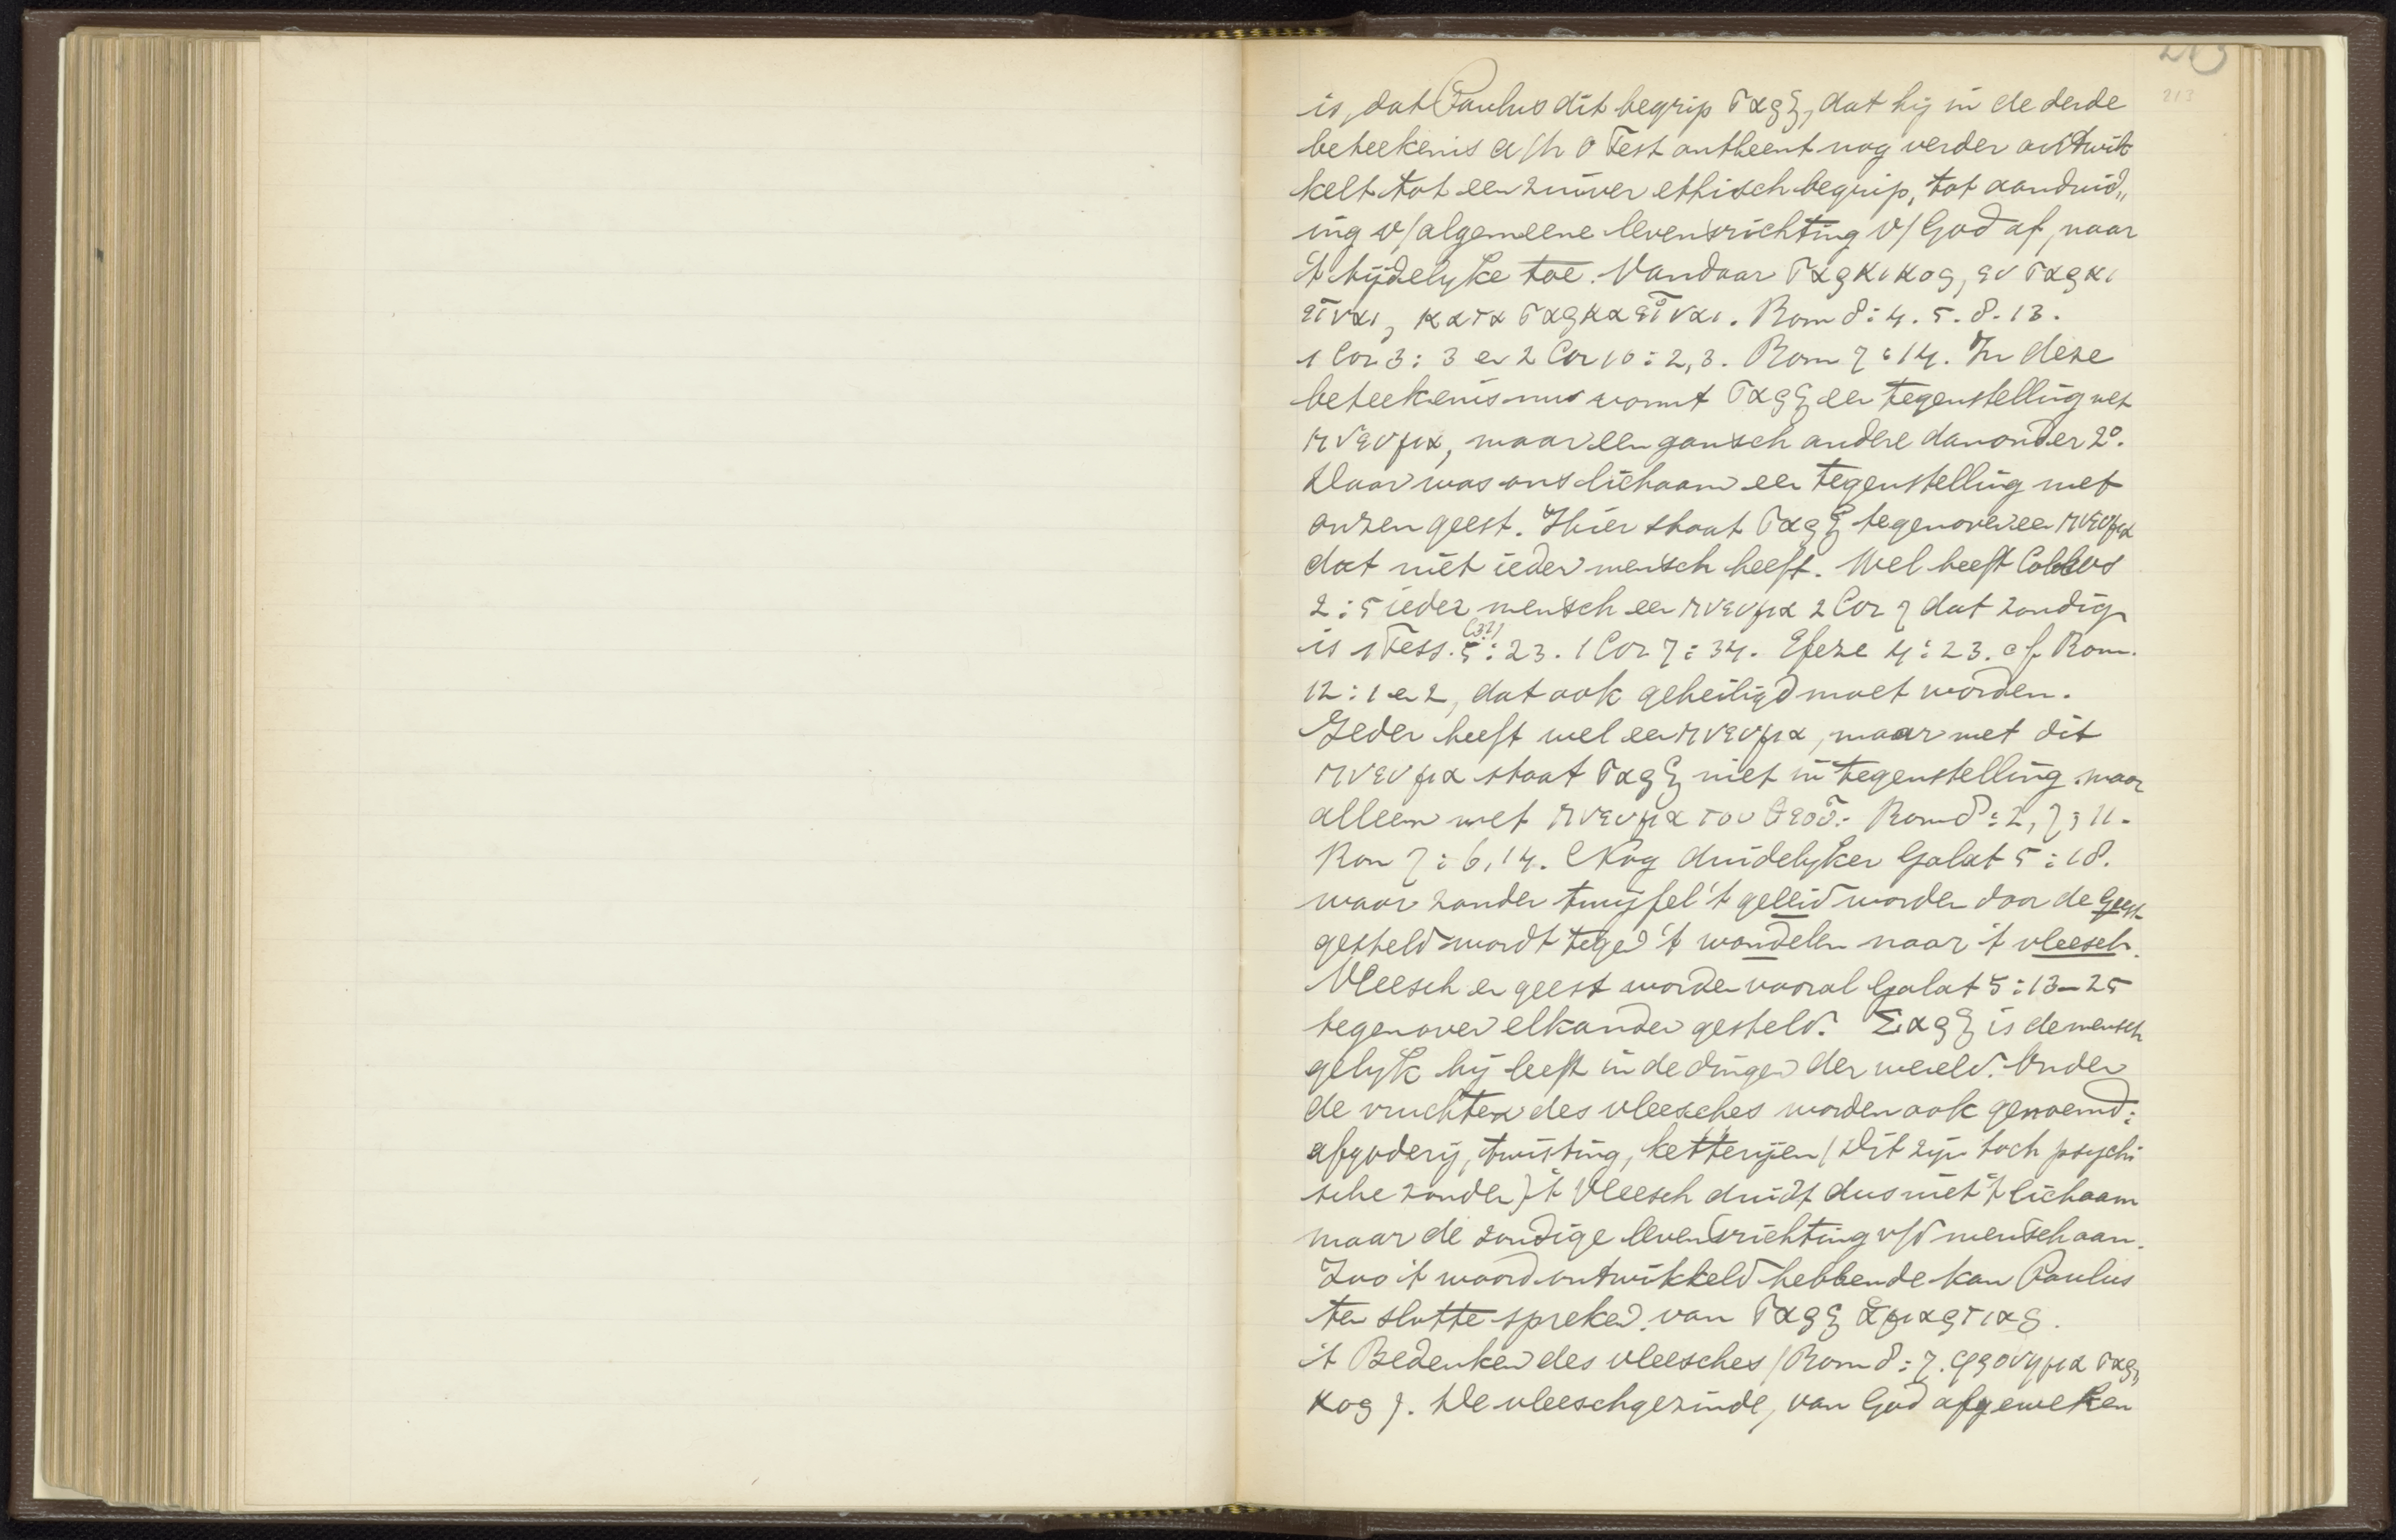 213
is, dat Paulus dit begrip σαρξ, dat hij in de derde
beteekenis a/h O Test ontleent nog verder ontwik
kelt tot een zuiver ethisch begrip, tot aanduid„
ing v/algemeene levensrichting v/God af, naar
't tijdelyke toe. Vandaar σαρκικος, εν σαρκι
εἶναι, κατα σαρκα εἶναι. Rom 8:4.5.8.13.
1 Cor 3:3 en 2 Cor 10:2,3. Rom 7:14. In deze
beteekenis nu vormt σαρξ een tegenstelling met
πνευμα, maar een gansch andere dan onder 2°.
Daar was ons lichaam een tegenstelling met
onzen geest. Hier staat σαρξ tegenover een πνευμα
dat niet ieder mensch heeft. Wel heeft
2:5 ieder mensch een πνευμα 2 Cor 7 dat zondig
is 1 Tess. 5(3?):23. 1 Cor 7:34. Efeze 4:23. cf Rom.
12:1 en 2, dat ook geheiligd moet worden.
Ieder heeft wel een πνευμα, maar met dit
πνευμα staat σαρξ niet in tegenstelling maar
alleen met πνευμα του θεοῦ. Rom 8:2,7,11.
Rom 7:6,14. Nog duidelyker Galat 5:18.
waar zonder twijfel 't geleid worden door de Geest
gesteld wordt tegen 't wandelen naar 't vleesch.
Vleesch en geest worden vooral Galat 5:13-25
tegenover elkander gesteld. Σαρξ is de mensch
gelyk hij leeft in de dingen der wereld. Onder
de vruchten des vleesches worden ook genoemd:
afgoderij, twisting, ketterijen (Dit zijn toch psychi
sche zonden) 't Vleesch duidt dus niet 't lichaam
maar de zondige levensrichting v/d mensch aan.
Zoo 't woord ontwikkeld hebbende kan Paulus
ten slotte spreken van σαρξ ἁμαρτιας.
't Bedenken des vleesches (Rom 8:7. φρονημα σαρ„
κος). De vleeschgezinde, van God afgeweken